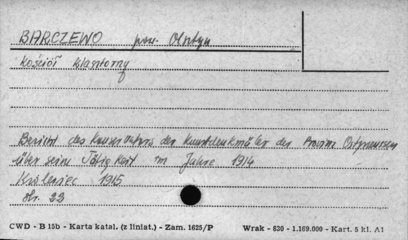 BARCZEWO pow. Olsztyn
Kościół klasztorny
Bericht des Konservators der Kunstdenkmäler der Provinz Ostpreussen
über seine Tätigkeit im Jahre 1914
Królewiec 1915
str. 33
CWD - B 15b - Karta katal. (z liniat.) - Zam. 1625/P Wrak - 830 - 1.169.000 - Kart. 5 kl. A1